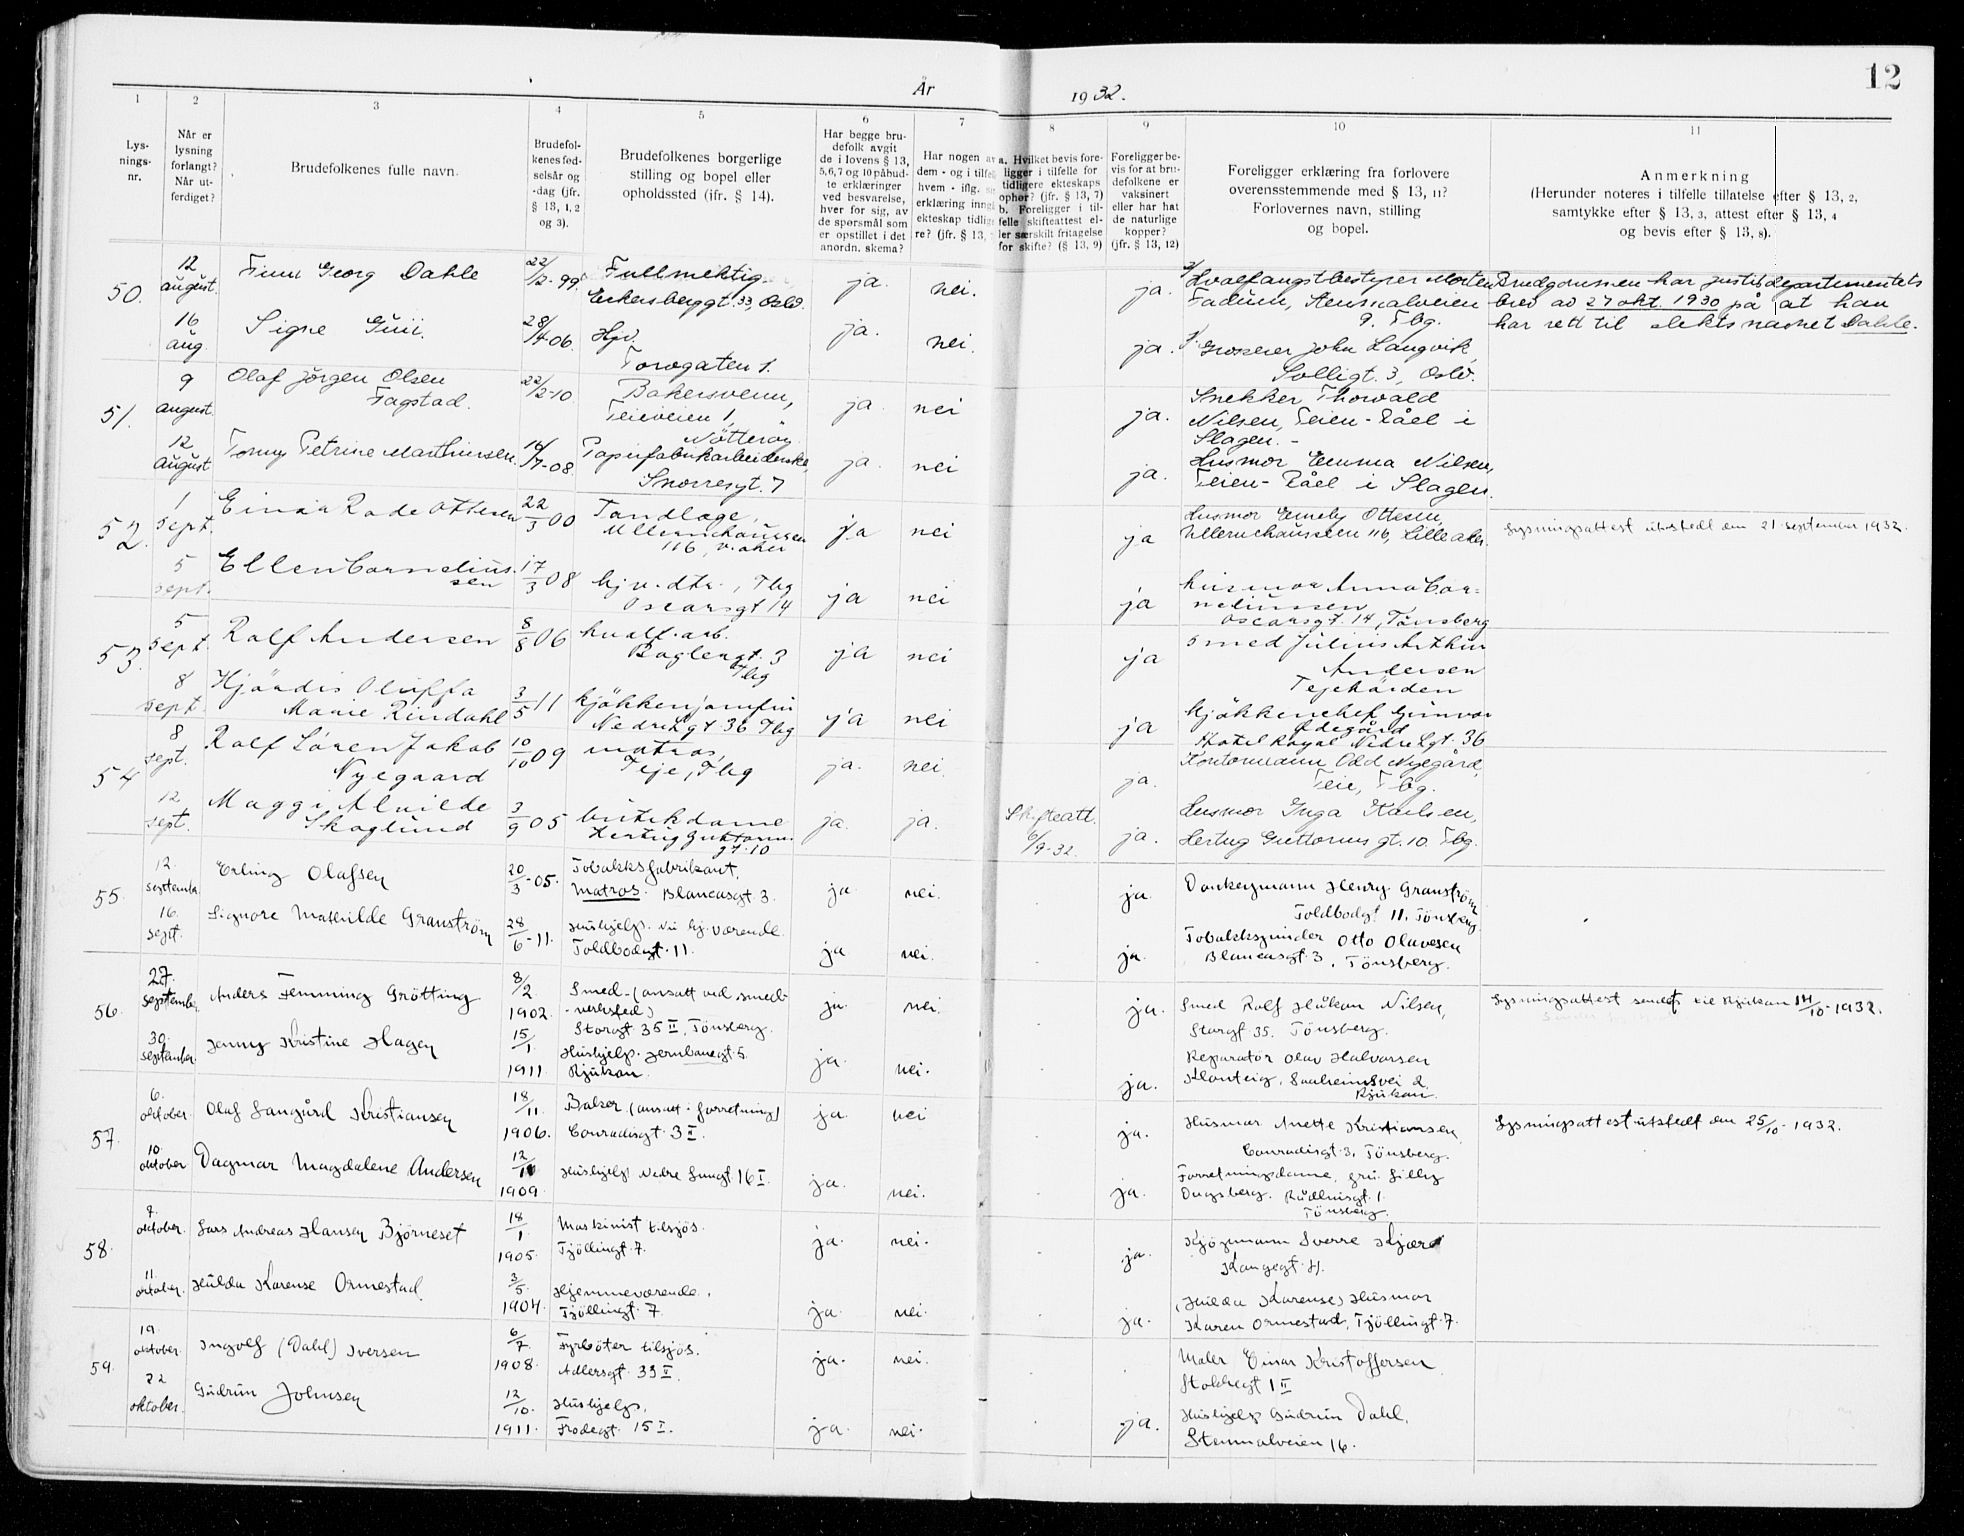 12
År 1932.
1 2 3 4 5 6 7 8 9 10 11
Lys-
nings-
nr.
Når er
lysning
forlangt?
Når ut-
ferdiget?
Brudefolkenes fulle navn.
Brudefol-
kenes fød-
selsår og
-dag (jfr.
§ 13, 1, 2
og 3).
Brudefolkenes borgerlige
stilling og bopel eller
opholdssted (ifr. § 14).
Har begge bru-
defolk avgit
de i lovens § 13,
5, 6, 7 og 10 påbud-
te erklæringer
ved besvarelse,
hver for sig, av
de spørsmål som
er opstillet i det
anordn. skema?
Har nogen av
dem - og i tilfelle
hvem - iflg.
erklæring inngått
ekteskap tidlige-
re? (jfr. § 13,
a. Hvilket bevis fore-
ligger i tilfelle for
tidligere ekteskaps
ophør? (jfr. § 13, 7)
b. Foreligger i til-
felle skifteattest el-
ler særskilt fritagelse
for skifte? (§ 13, 9)
Foreligger be-
vis for at bru-
defolkene er
vaksinert
eller har hat
de naturlige
kopper?
(jfr. § 13, 12)
Foreligger erklæring fra forlovere
overensstemmende med § 13, 11?
Forlovernes navn, stilling
og bopel.
Anmerkning
(Herunder noteres i tilfelle tillatelse efter § 13, 2,
samtykke efter § 13, 3, attest efter § 13, 4
og bevis efter § 13, 8).
50. 12 august. Finn Georg Dahle 22/2-99. Fullmektig
Eckersberggt. 33, Oslo. ja. nei. ja.
Hvalfangstbestyrer Morten
Fadum, Stensalveien
9. Tbg.
Brudgommen har justisdepartementets
brev av 27 okt. 1930 på at han
har rett til slektsnavnet Dahle.
16 aug. Signe Guii. 28/4-06. Hjv.
Torvgaten 1. ja. nei. ja.
Grosserer John Langvik,
Solligt. 3, Oslo.
51. 9 august. Olaf Jörgen Olsen
Fagstad. 22/2-10 Bakersvenn,
Teieveien 1,
Nötteröy. ja. nei ja.
Snekker Thorvald
Nilsen, Teien - Råel i
Slagen. -
12 august Tonny Petrine Marthinsen. 14/7-08. Papirfabrikarbeiderske,
Snorresgt. 7 ja. nei ja.
Husmor Emma Nilsen,
Teien - Råel i Slagen.
52. 1 sept. Einar Rode Ottesen 22/3 00 Tandlæge,
Ullernchausseen
116, v. aker ja nei ja
Husmor Emely Ottesen,
Ullernchausseen 116, Lilleaker.
Lysningsattest utstedt den 21. september 1932.
5 sept. Ellen Cornelius-
sen 17/3 08 hjv. dtr., Tbg
Oscarsgt 14 ja nei ja
husmor Anna Cor-
neliussen
Oscarsgt. 14, Tønsberg
53. 5 sept. Rolf Andersen 8/8 06 hvalf. arb.
Baglergt. 3
Tbg ja nei ja
smed Julius Arthur
Andersen
Tejehöiden
8 sept. Hjördis Oluffa
Marie Rindahl 3/5 11 kjökkenjomfru
Nedre Lgt. 36 Tbg ja nei ja
kjökkenchef Gunvor
Ødegård
Hotel Royal Nedre Lgt. 36
54 8 sept. Rolf Sören Jakob
Nyegaard 10/10 09 matros,
Teje, Tbg ja. nei. ja.
Kontormann Odd Nyegård,
Teie, Tbg.
12 sept. Maggi Alvilde
Skoglund 3/9 05 butikdame
Hertug Guttorms-
gt. 10 ja. ja. Sk. fteatt.
6/9-32. ja.
Husmor Inga Karlsen,
Hertug Guttormsgt. 10. Tbg.
55. 12. septembr. Erling Olafsen 20/3-05. Tobakksfabrikant,
Matros. Blancasgt 3. ja. nei. ja.
Donkeymann Henry Granström
Toldbodgt 11, Tönsberg.
16. sept. Signore Mathilde Granström 28/6-11. Hushjelp. Nu hj. værende.
Toldbodgt. 11. ja nei. ja.
Tobakkspinder Otto Olavesen
Blancasgt 3, Tönsberg.
56. 27. september. Anders Flemming Grötting 8/2 1902. Smed. (ansatt ved smed-
verksted)
Storgt 35 II, Tönsberg. ja. nei. ja.
Smed Rolf Håkon Nilsen,
Storgt 35. Tönsberg.
Lysningsattest sendt til Rjukan 14/10-1932.
30. september. Jenny Kristine Hagen 15/1. 1911. Hushjelp. Jernbanegt 5.
Rjukan. ja. nei. ja.
Reparatör Olav Halvorsen
Klonteig, Saaheimsvei 2,
Rjukan.
57. 6. oktober. Olaf Langård Kristiansen 18/11. 1906. Baker (ansatt i forretning)
Conradisgt 3 II. ja. nei ja.
Husmor Anette Kristiansen,
Conradisgt. 3, Tönsberg.
Lysningsattest utstedt den 25/10-1932.
10. oktober Dagmar Magdalene Andersen 12/11 1909. Hushjelp Nedre Langgt. 16 I. ja. nei. ja.
Forretningsdame, fru Lilly
Dugsberg, Rådhusgt. 1.
Tönsberg.
58. 7. oktober. Lars Andreas Hansen Björneset 18/1 1905. Maskinist tilsjös.
Tjöllingt. 7. ja. nei. ja.
Kjöpmann Sverre Kjær
Kongegt. 4.
11. oktober. Hulda Karense Ormestad. 3/5. 1904. Hjemmeværende.
Tjöllingt. 7. ja. nei. ja.
(Hulda Karense) Husmor
Karen Ormestad, Tjöllingt. 7.
59. 19 oktober. Ingolf (Dahl) Iversen 6/7. 1908. Fyrböter tilsjös.
Adlersgt 33 II. ja. nei.
Maler Einar Kristoffersen
Stokkegt 1 II
22 oktober. Gudrun Johnsen 12/10. 1911. Hushjelp.
Frodegt. 15 I. ja. nei. ja.
Hushjelp Gudrun Dahl,
Stensalveien 16.